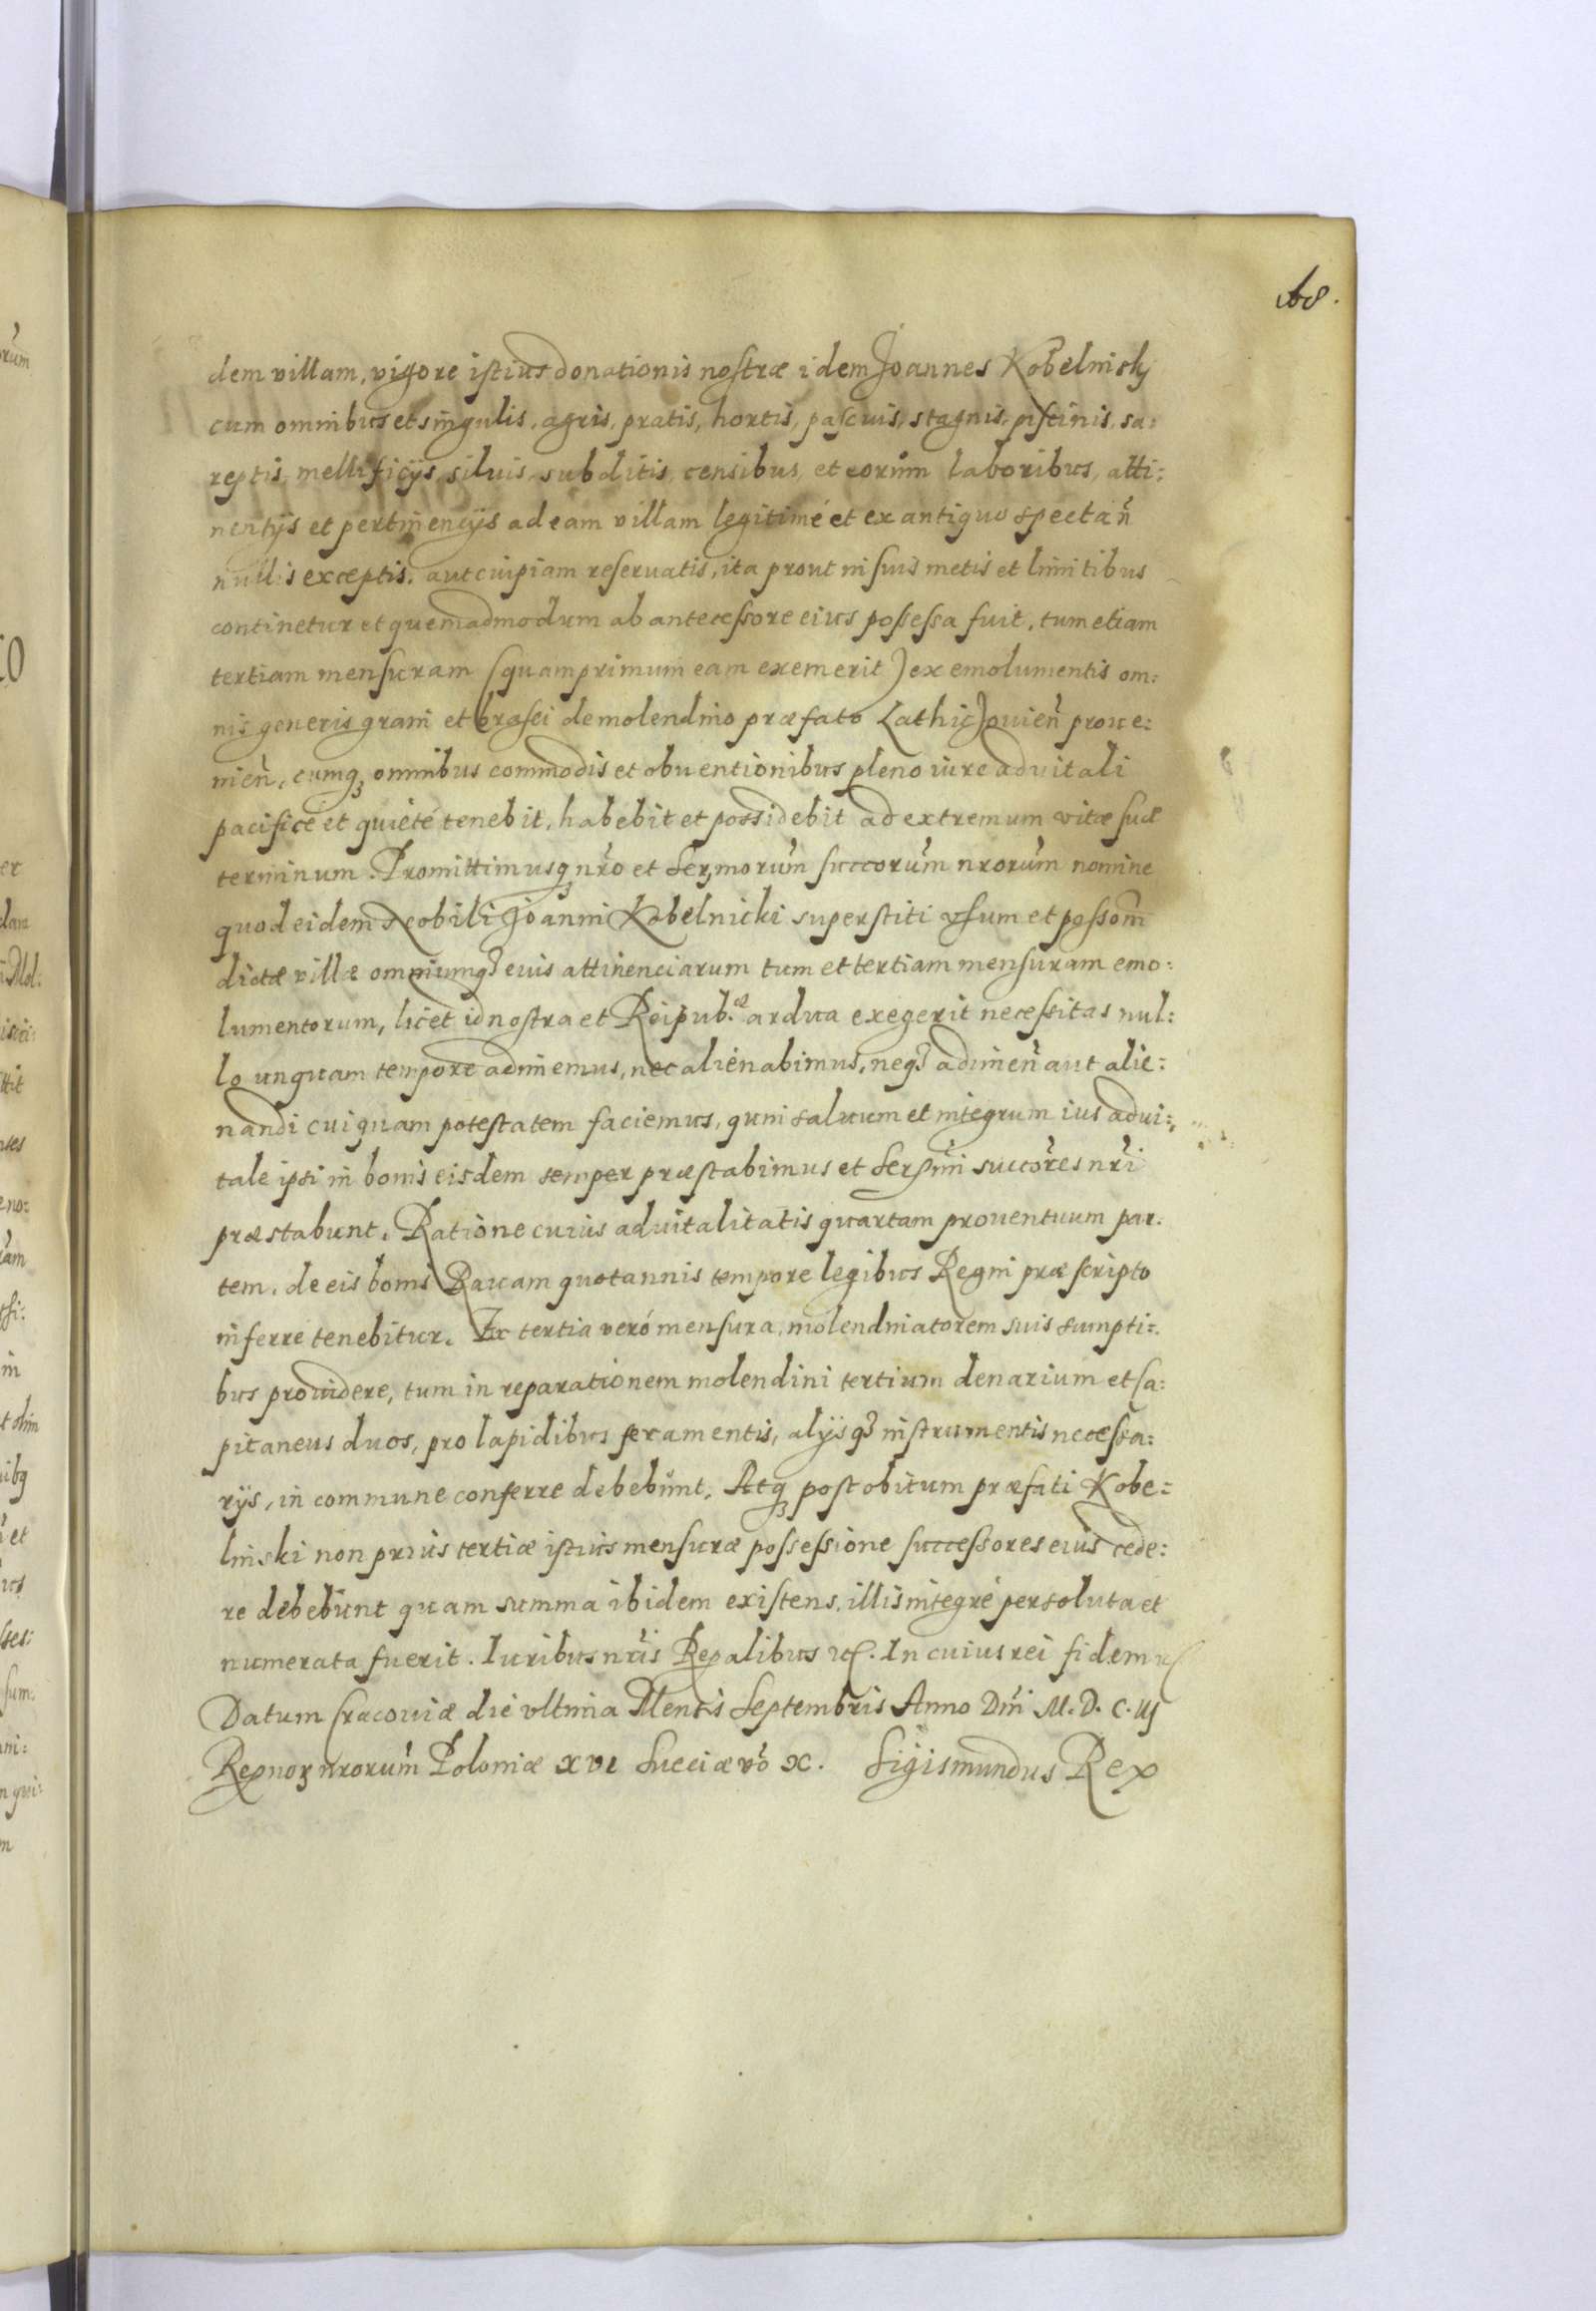 68.
dem villam, vigore istius donationis nostræ idem Joannes Kobelnickj
cum omnibus et singulis, agris, pratis, hortis, pascuis, stagnis, piscinis, sa:
reptis, mellificijs, siluis, subditis, censibus et eorum laboribus, atti:
nentijs et pertinencijs ad eam villam legitimè et ex antiquo spectan̄
nullis exceptis, aut cuipiam reseruatis, ita prout in suis metis et limitibus
continetur et quemadmodum ab antecessore eius possessa fuit, tum etiam
tertiam mensuram (quamprimum eam exemerit) ex emolumentis om:
nis generis grani et brasei de molendino præfato prоue:
nien̄, cumq₃ omnibus commodis et obuentionibus pleno iure aduitali
pacificè et quietè tenebit, habebit et possidebit ad extremum vitæ suæ
terminum. Promittimusq₃ nr̄o et Ser₃morum succorum nrorum nomine
quod eidem Nobili Joanni Kobelnicki superstiti vsum et possom̄
dictæ villæ omniumq₃ eius attinenciarum tum et tertiam mensuram emo:
lumentorum, licet id nostra et Reipub.æ ardua exegerit necessitas nul:
lo unquam tempore adimemus, nec alienabimus, neq₃ adimen̄ aut alie:
nandi cuiquam potestatem faciemus, quin saluum et integrum ius adui:
tale ipsi in bonis eisdem semper præstabimus et Sermi succores nr̄i
præstabunt. Ratione cuius aduitalitatis quartam prouentuum par:
tem, de eis bonis Rauam quotannis tempore legibus Regni præscripto
inferre tenebitur. Ex tertia verò mensura, molendinatorem suis sumpti:
bus prouidere, tum in reparationem molendini tertium denarium et Ca:
pitaneus duos, pro lapidibus feramentis, alijsq₃ instrumentis necessa:
rijs, in commune conferre debebunt. Atq₃ post obitum præfati Kobe:
lniski non prius tertiæ istius mensuræ possessione successores eius cede:
re debebunt quam summa ibidem existens, illis integrè persoluta et
numerata fuerit. Iuribus nr̄is Regalibus etc. In cuius rei fidem etc
Datum Cracouiæ die vltima Mensis Septembris Anno Dm̄i M.D.C.iij
Regnor₃ nrorum Poloniæ xvi Sueciæ vo x. Sigismundus Rex